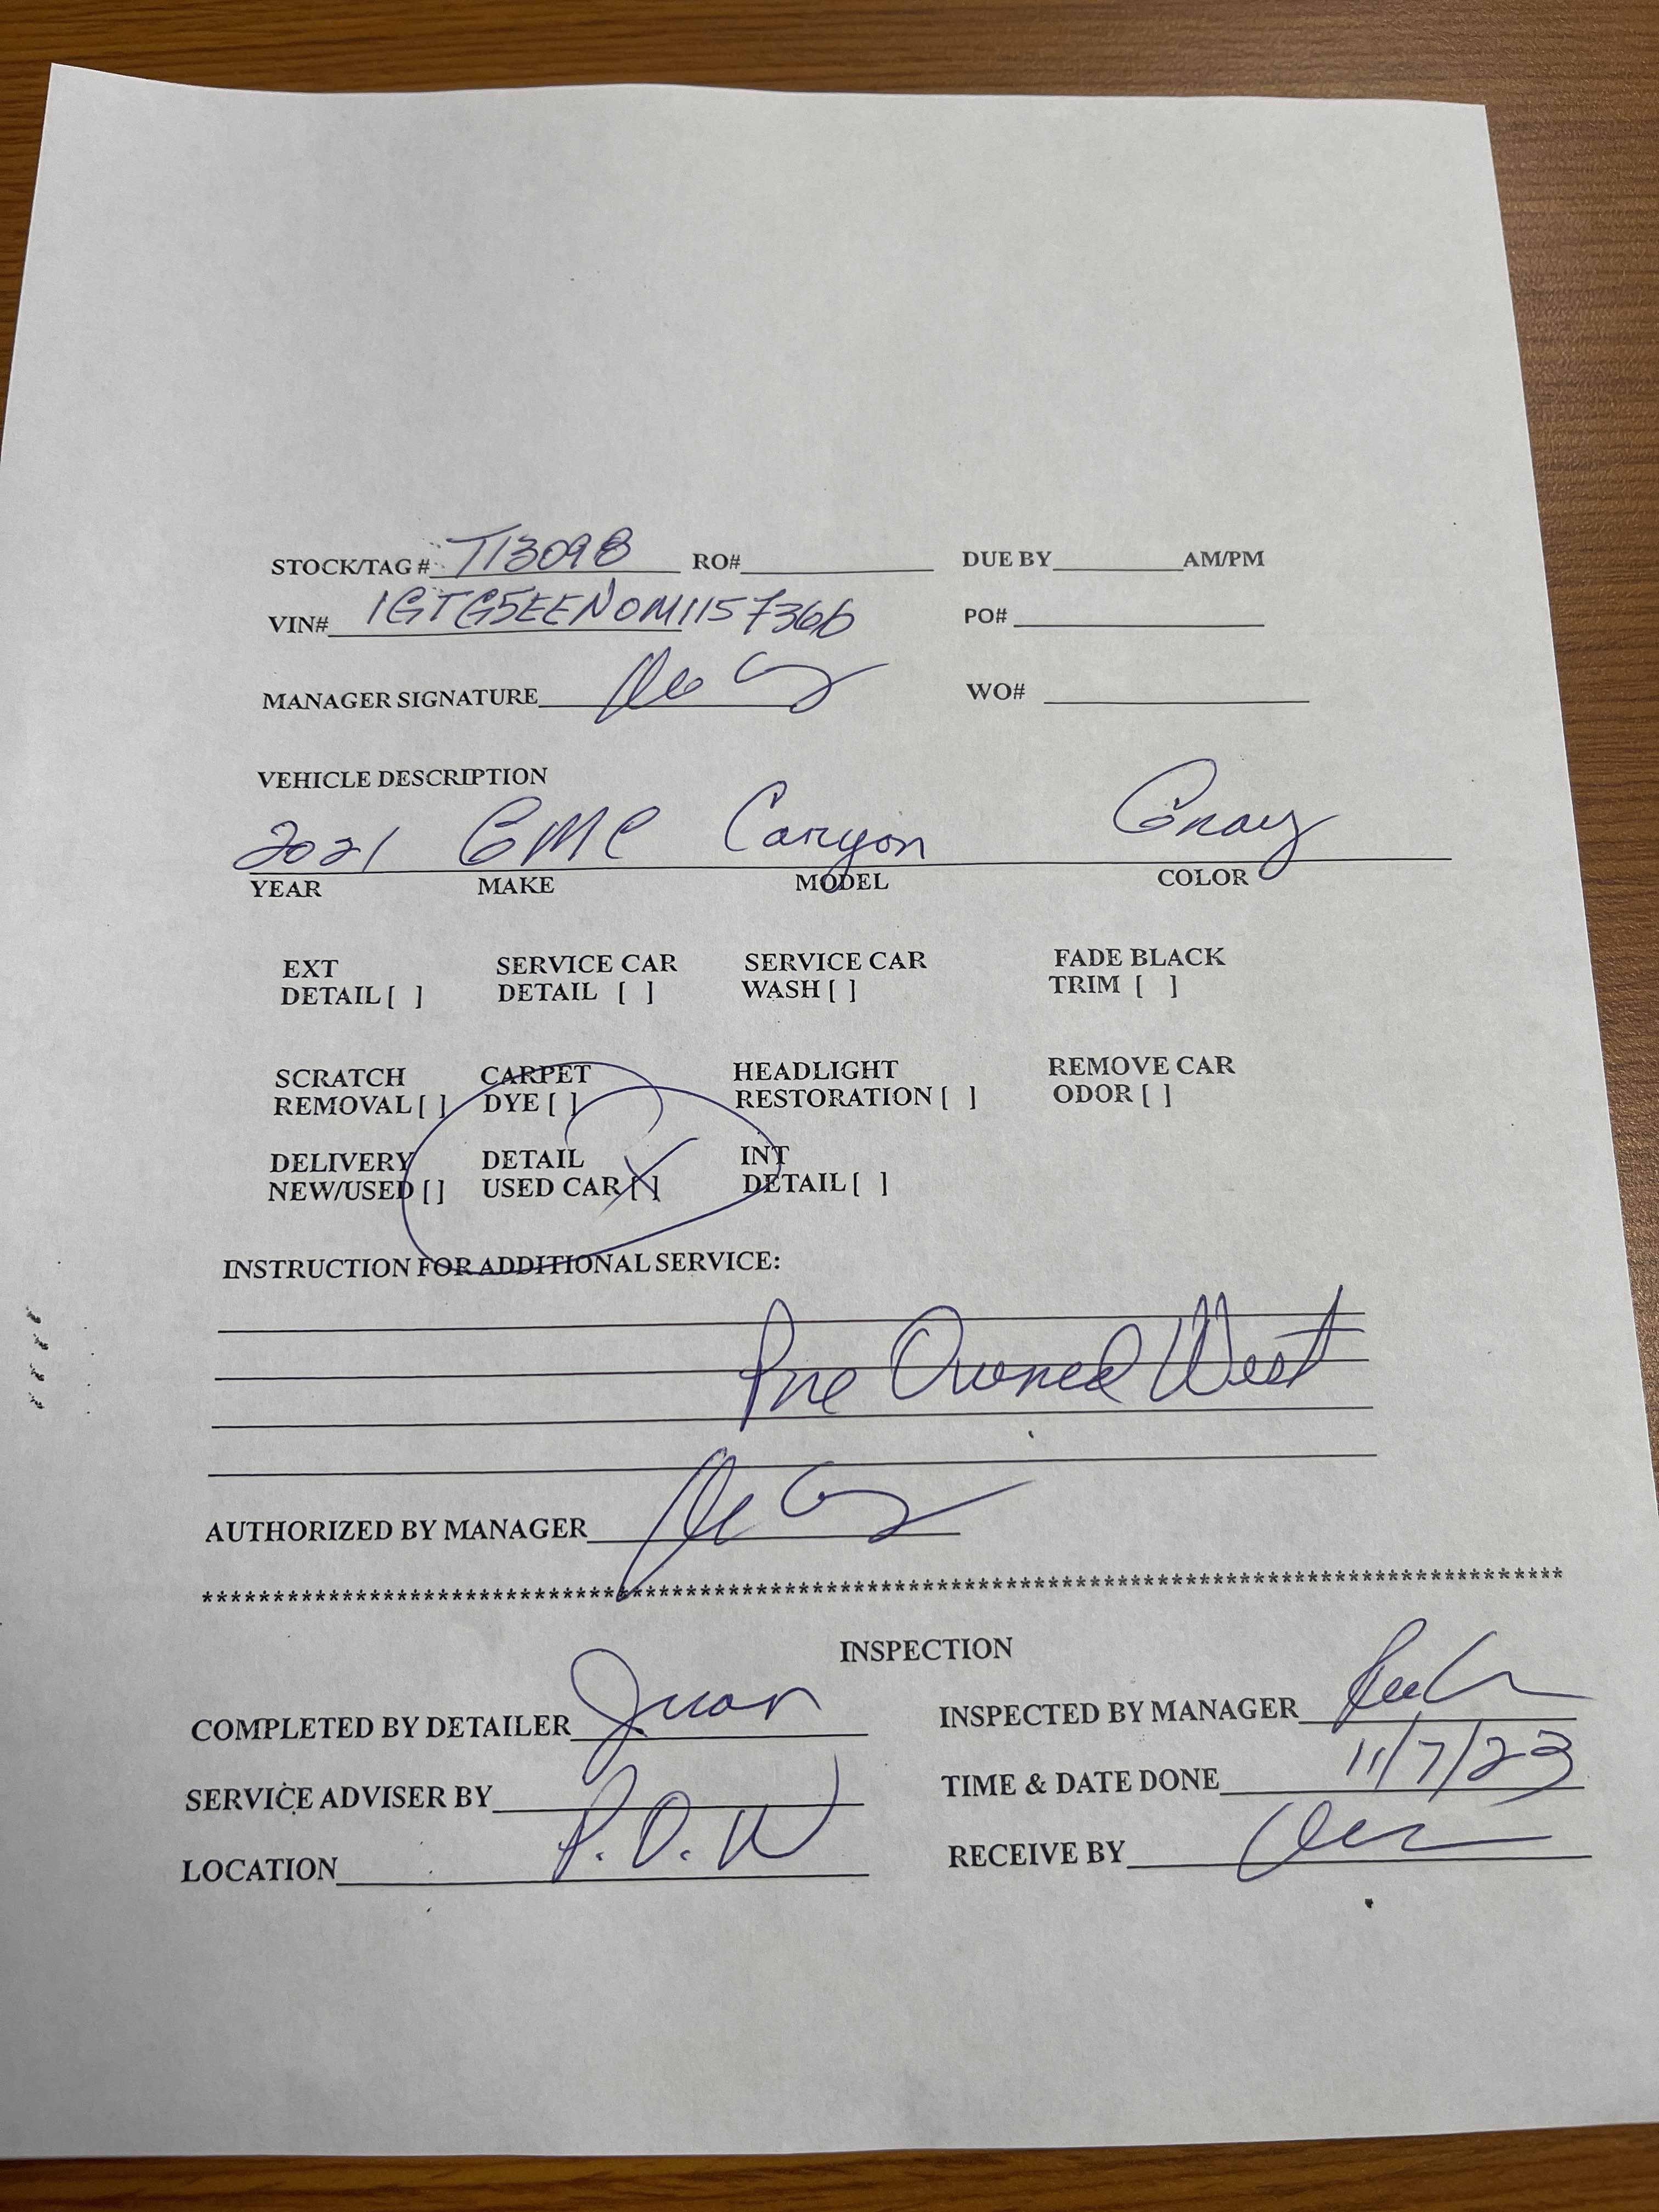 STOCK/TAG # T13098 RO# DUE BY AM/PM
VIN# 1GTG5EEN0M1157366 PO#
MANAGER SIGNATURE WO#
VEHICLE DESCRIPTION
2021 GMC Canyon Gray
YEAR MAKE MODEL COLOR
EXT SERVICE CAR SERVICE CAR FADE BLACK
DETAIL [ ] DETAIL [ ] WASH [ ] TRIM [ ]
SCRATCH CARPET HEADLIGHT REMOVE CAR
REMOVAL [ ] DYE [ ] RESTORATION [ ] ODOR [ ]
DELIVERY DETAIL INT
NEW/USED [ ] USED CAR [X] DETAIL [ ]
INSTRUCTION FOR ADDITIONAL SERVICE:
Pre Owned West
AUTHORIZED BY MANAGER
INSPECTION
COMPLETED BY DETAILER Juan INSPECTED BY MANAGER
SERVICE ADVISER BY TIME & DATE DONE 11/7/23
LOCATION P.O.W RECEIVE BY